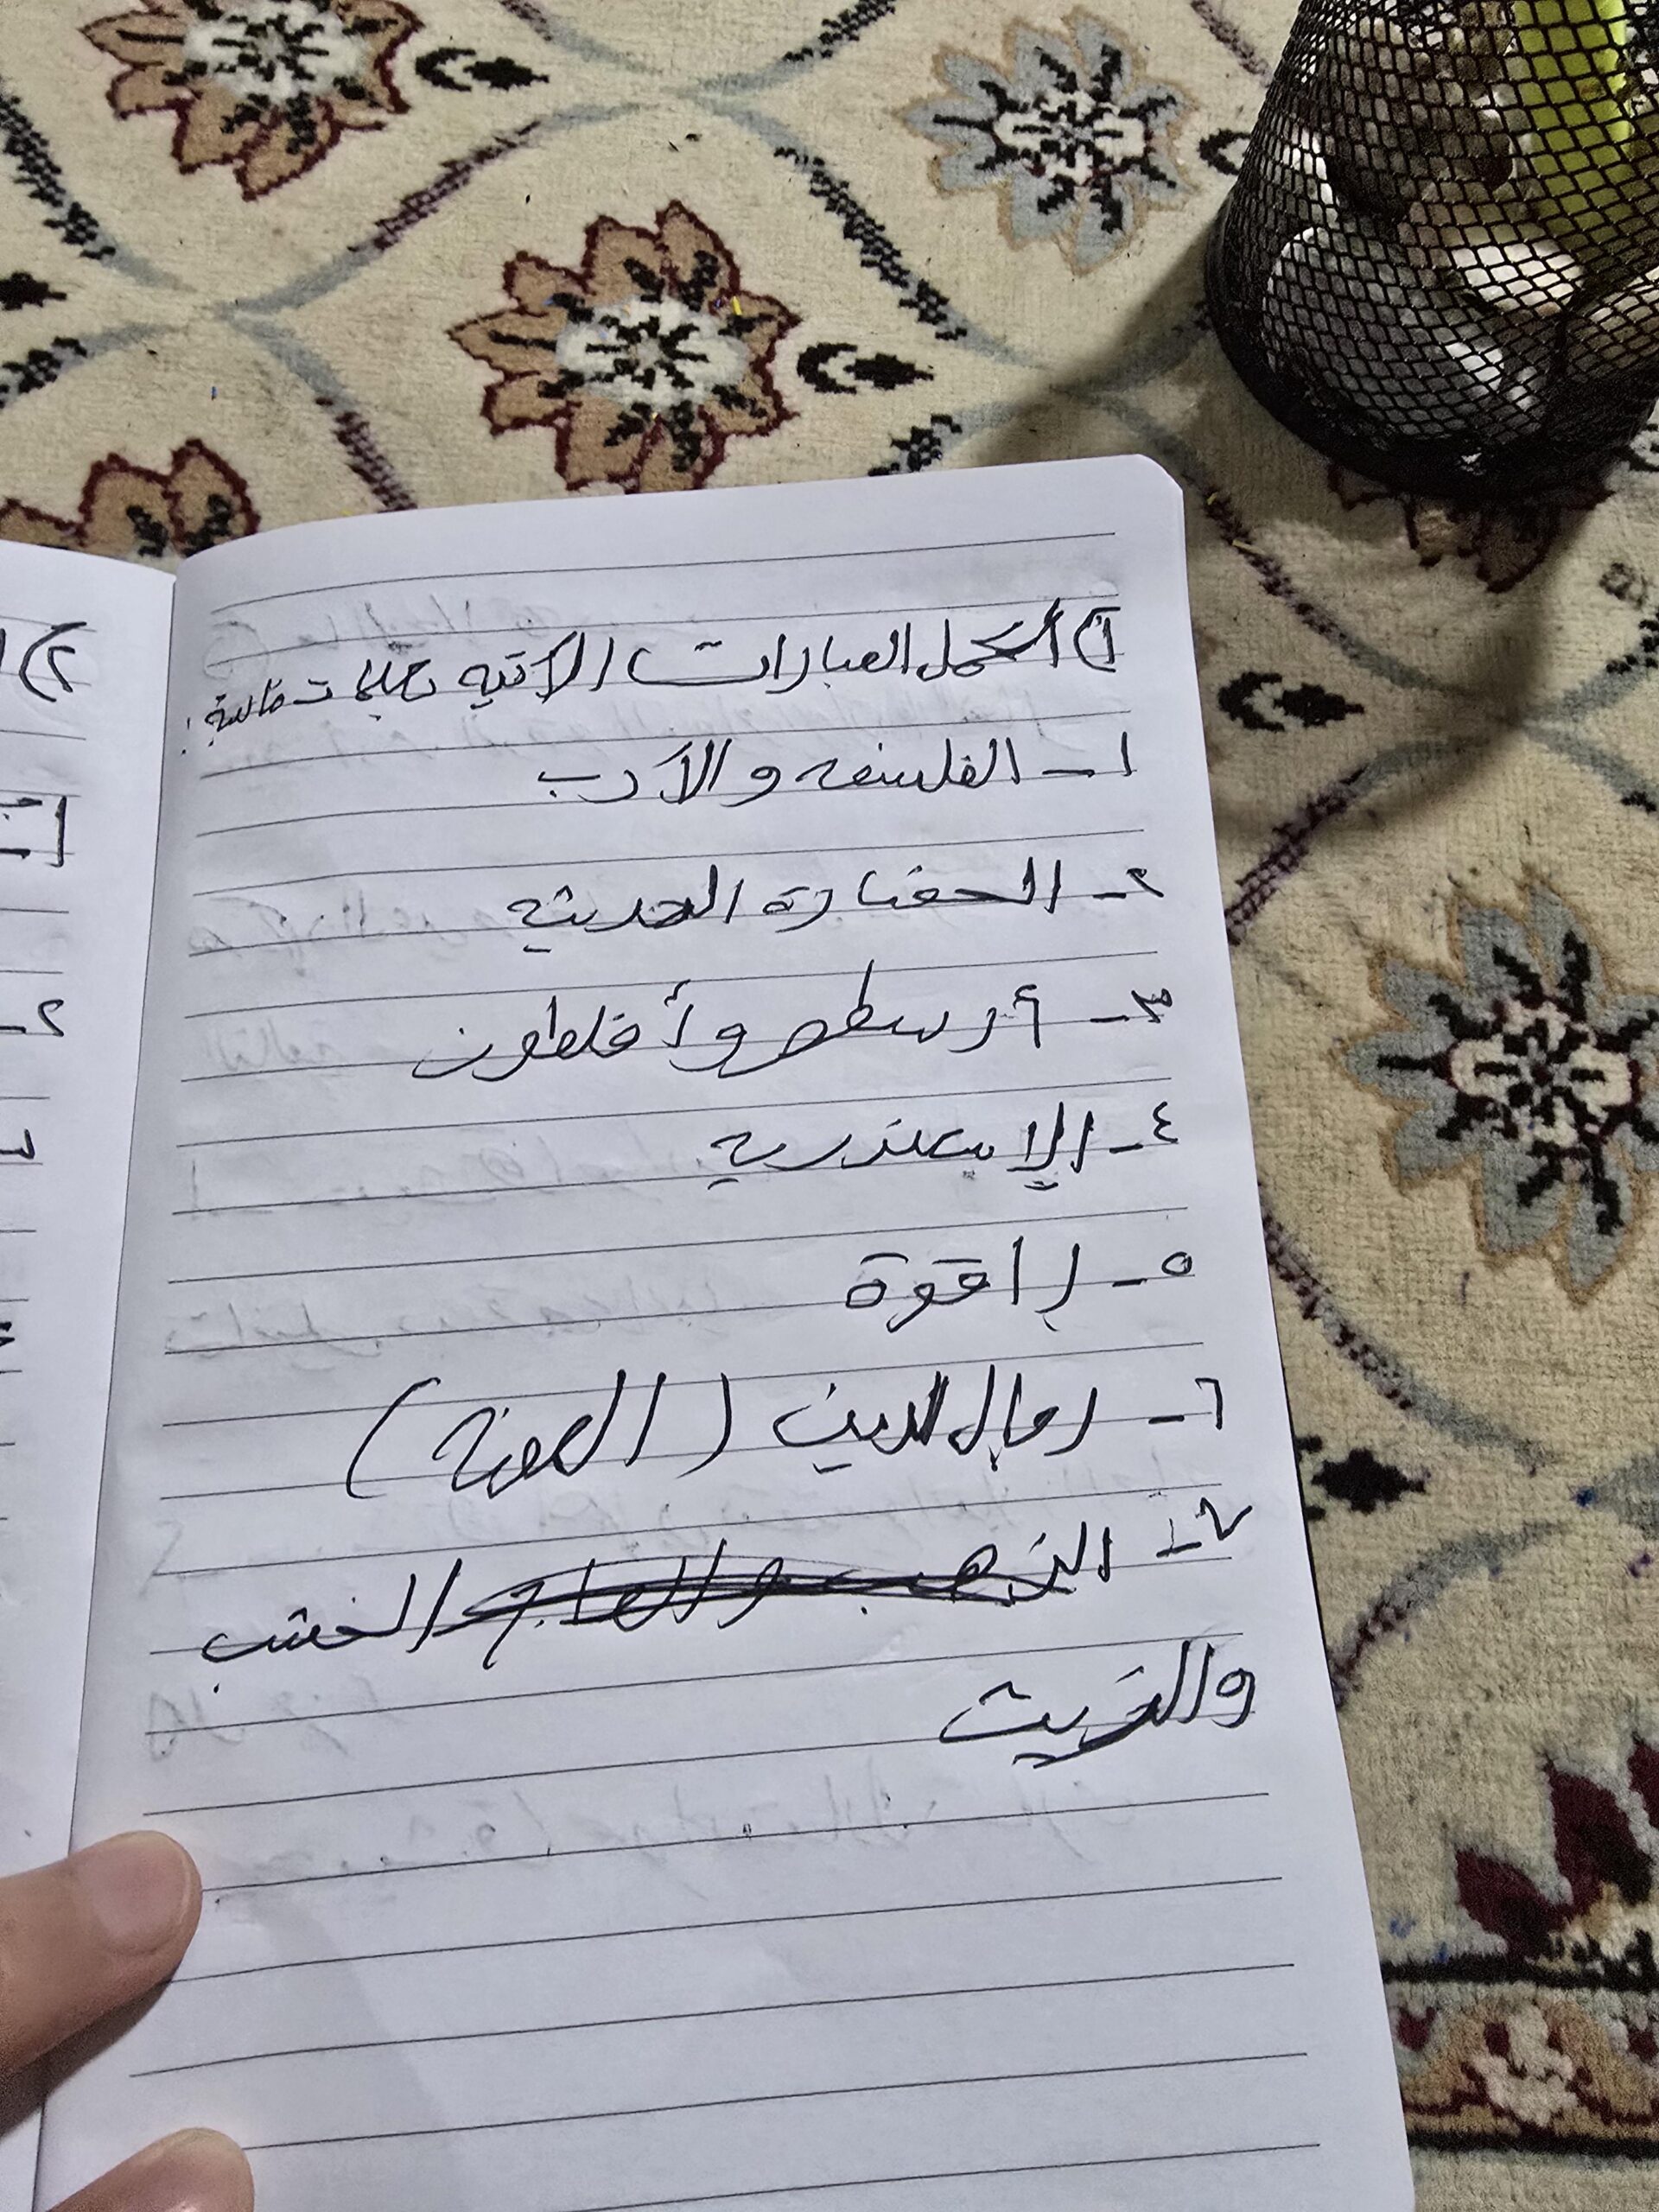 ١) أكمل العبارات الآتيه بكلمات مناسبة:
١- الفلسفه والأدب
٢- الحضارة الحديثه
٣- أرسطو وأفلطون
٤- الإسكندريه
٥- راقوة
٦- رجال الدين (الكهنة)
٧- الذهب والعاج الخشب
والزيت
٢)
٢-